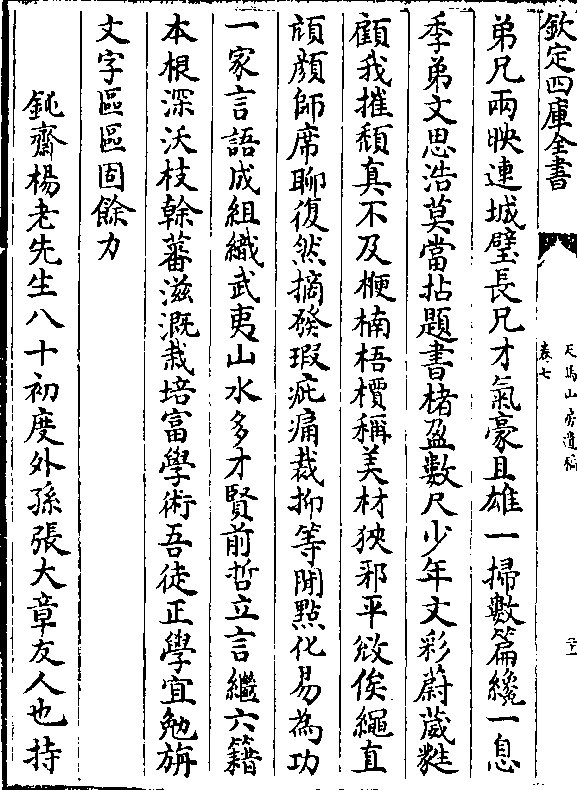 欽定四庫全書
天馬山房遺稿
卷七
弟兄兩映連城璧長兄才氣豪且雄一掃數篇纔一息
季弟文思浩莫當拈題書楮盈數尺少年文彩蔚葳甤
顧我摧頹真不及楩楠梧檟稱美材狹邪平㸃俟繩直
頎顏師席聊復然摘發瑕疵痛裁抑等閒點化易為功
一家言語成組織武夷山水多才賢前哲立言繼六籍
本根深沃枝榦蕃滋溉栽培富學術吾徒正學宜勉旃
文字區區固餘力
鈍齋楊老先生八十初度外孫張大章友人也持